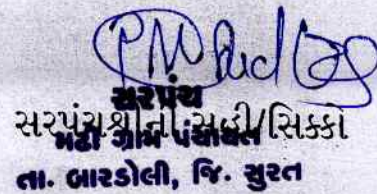 સરપંચ
સરપંચશ્રીની સહી/સિક્કો
મઢી ગ્રામ પંચાયત
તા. બારડોલી, જિ. સુરત